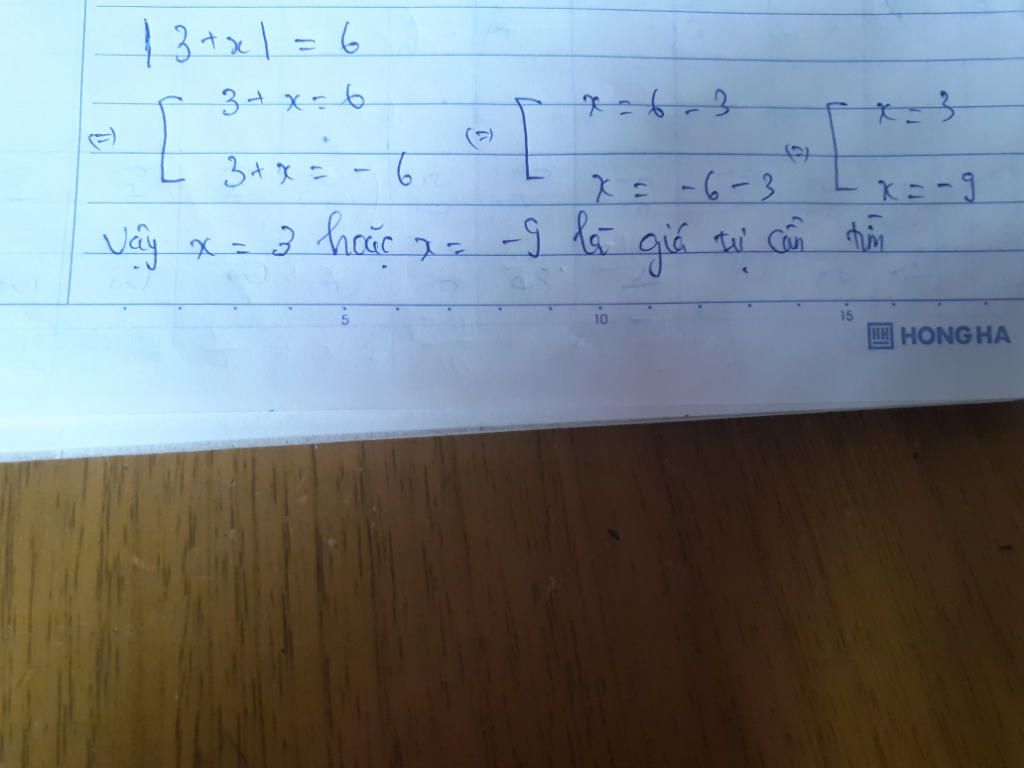 |3+x| = 6
(=) [ 3+ x = 6 (=) [ x = 6 - 3 (=) [ x = 3
3+x = - 6 x = -6-3 x = -9
Vậy x = 3 hoặc x = -9 là giá trị cần tìm
5 10 15
HH HONG HA